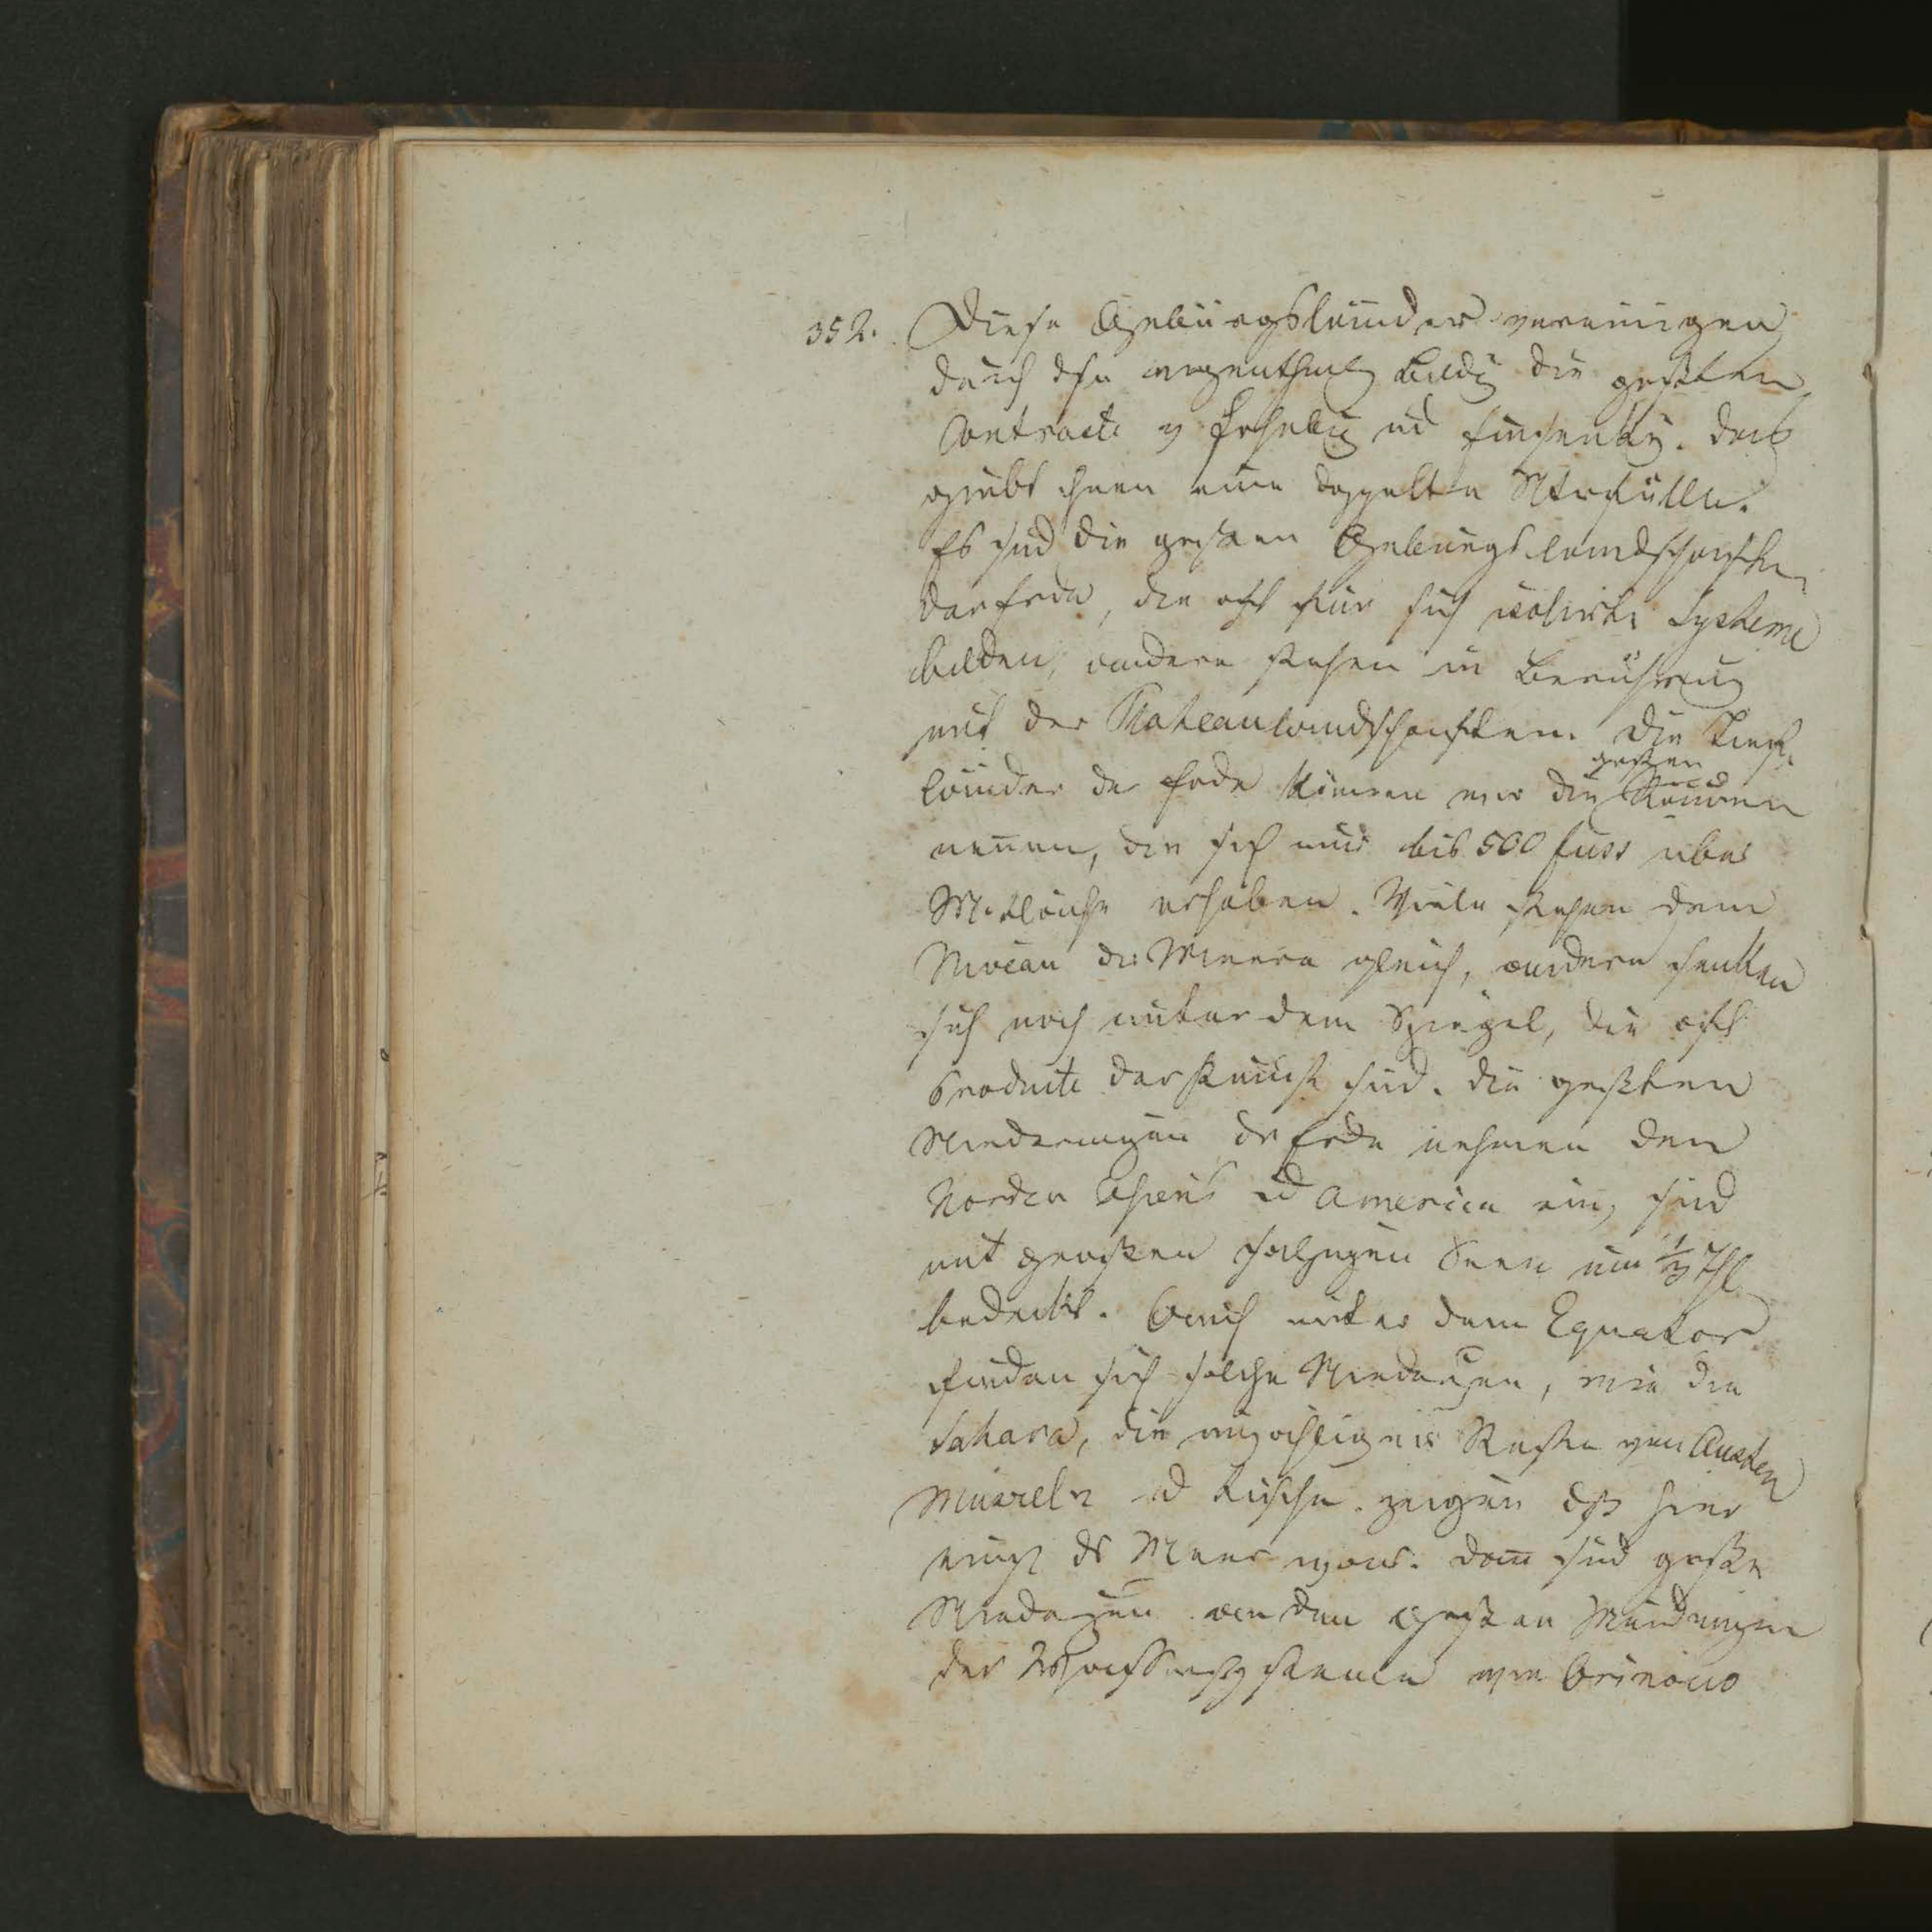 352. Diese Gebürgsländer vereinigen
durch dse eigenthml Bildg die grßten
Contraste v Erhebg und Einsenkg. Das
giebt ihnen eine doppelte Naturfülle.
Es sind die grßten Gebürgslandschaften
der Erde, die oft für sich isolirte Systeme
bilden, andere stehen in Berührung
mit den Plateaulandschaften. Die Tief-
länder der Erde können wir die
großen
Räume
nennen, die sich nur bis 500 Fuss über
M.fläche erheben. Viele stehen dem
Niveau des Meeres gleich, andere senken
sich noch unter dem Spiegel, die oft
Producte der Kunst sind. Die größten
Niederungen der Erde nehmen den
Norden Asiens und America ein, sind
mit großen salzigen Seen um 1/3 Thl
bedeckt. Auch unter dem Equator
finden sich solche Niederungen, wie die
Sahara, die Reste von Austern
Muscheln und Fische zeigen dß hier
einst ds Meer war. Dann sind große
Niederungen an den großen Mündungen
der Wassersysteme wie Orinoco